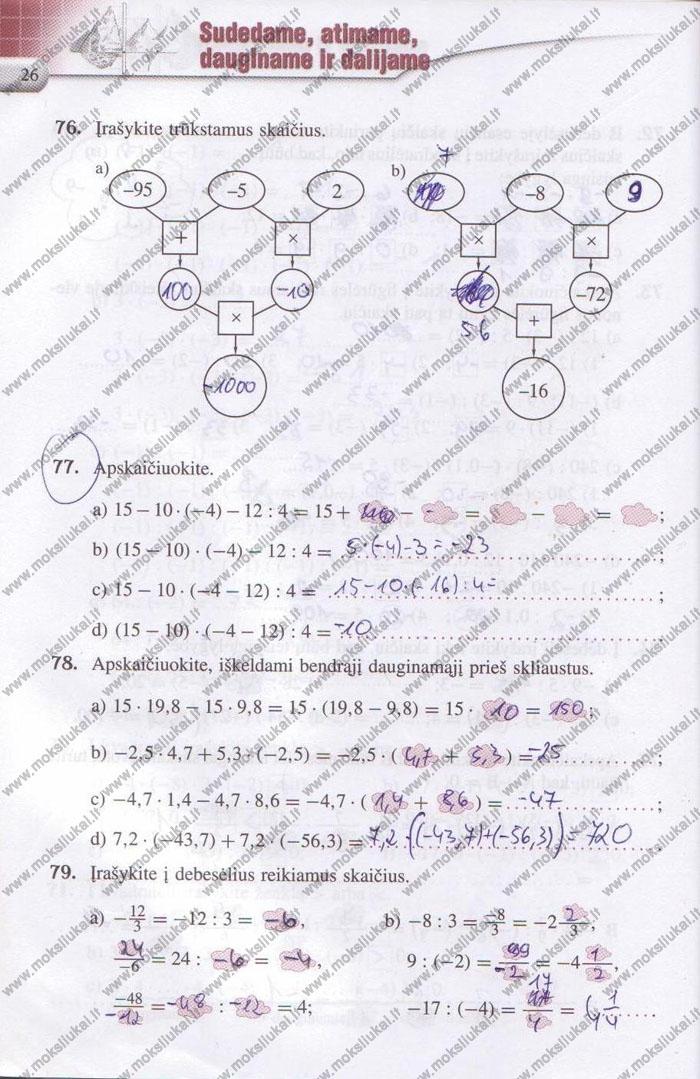 Sudedame, atimame,
dauginame ir dalijame
26
76. Įrašykite trūkstamus skaičius.
a) b)
7
-95 -5 2 -8 9
+ × × ×
100 -10 -72
56
× +
-1000 -16
77. Apskaičiuokite.
a) 15 – 10 · (–4) – 12 : 4 = 15 + – = – = ;
b) (15 – 10) · (–4) – 12 : 4 = 5·(-4)-3=-23 ;
c) 15 – 10 · (–4 – 12) : 4 = 15-10·(-16):4= ;
d) (15 – 10) · (–4 – 12) : 4 = -10
78. Apskaičiuokite, iškeldami bendrąjį dauginamąjį prieš skliaustus.
a) 15 · 19,8 – 15 · 9,8 = 15 · (19,8 – 9,8) = 15 · 10 = 150;
b) –2,5 · 4,7 + 5,3 · (–2,5) = –2,5 · (4,7 + 5,3) = -25 ;
c) –4,7 · 1,4 – 4,7 · 8,6 = –4,7 · (1,4 + 8,6) = -47 ;
d) 7,2 · (–43,7) + 7,2 · (–56,3) = 7,2·((-43,7)+(-56,3))=720
79. Įrašykite į debesėlius reikiamus skaičius.
a) –12/3 = –12 : 3 = -6, b) –8 : 3 = –8/3 = –2 2/3,
24/–6 = 24 : -6 = -4, 9 : (–2) = 99/-2 = –4 1/2,
–48/-12 = -48 : -12 = 4; –17 : (–4) = 17/4 =
www.moksliukai.lt